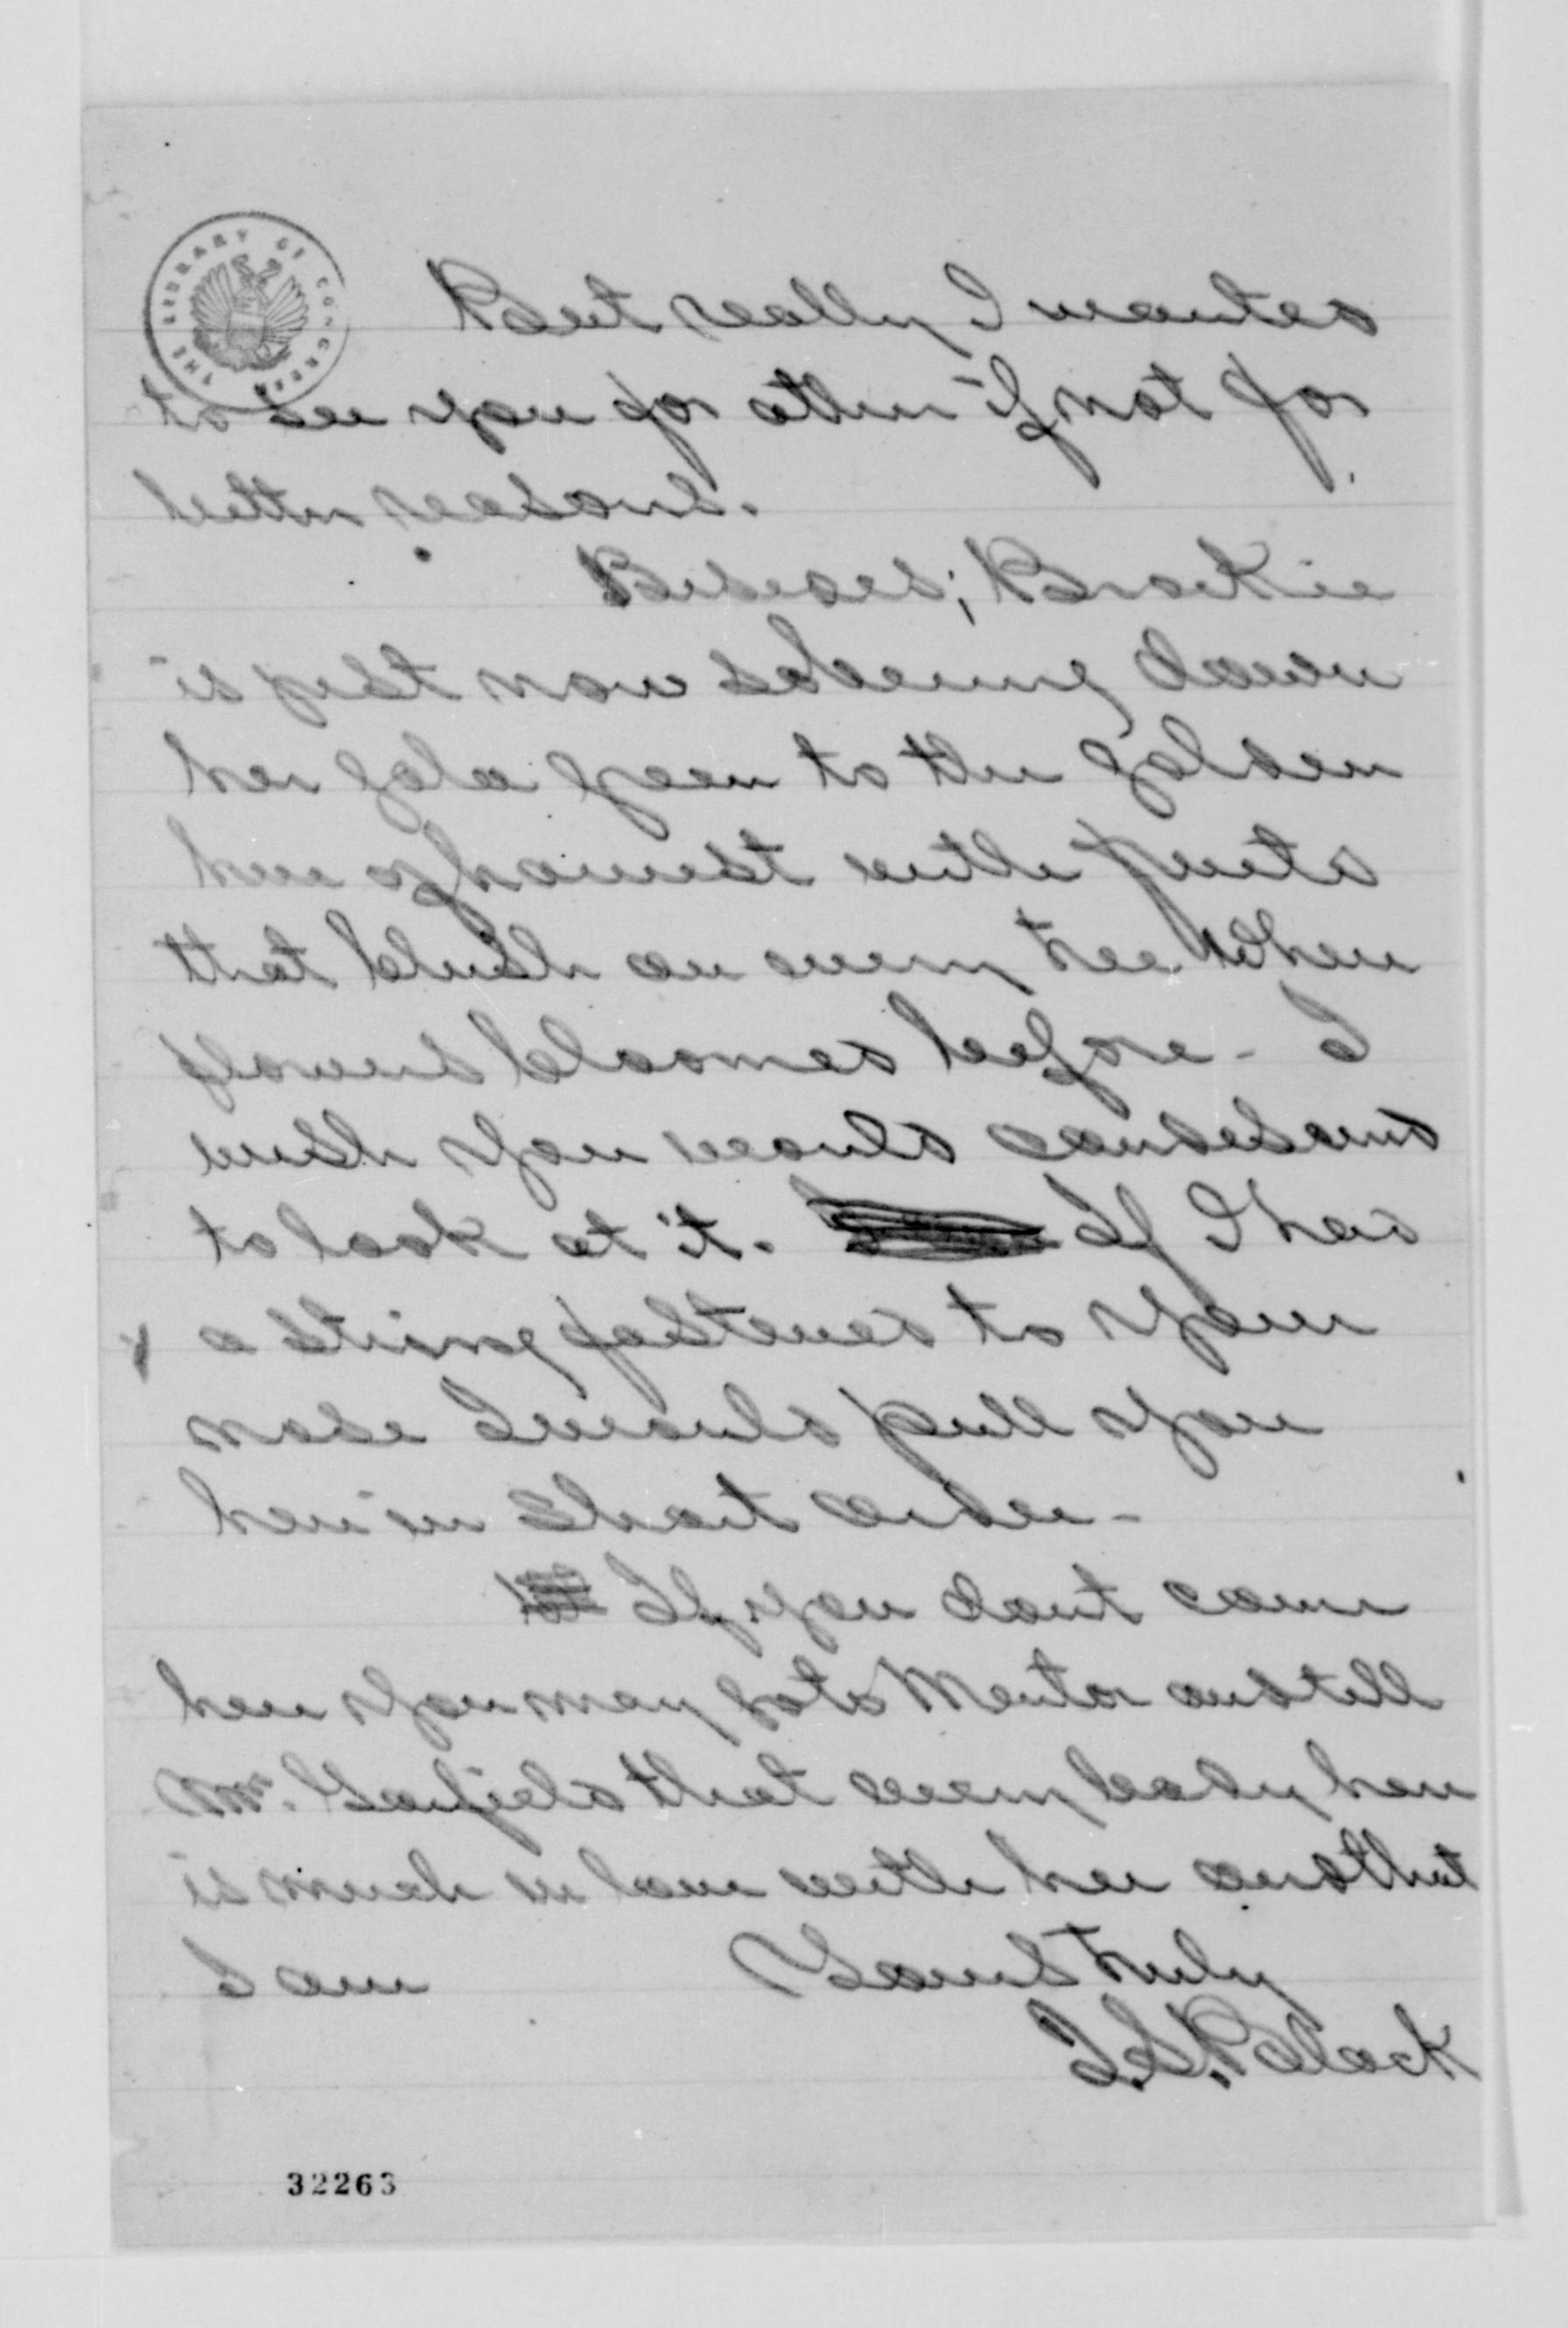 THE LIBRARY OF CONGRESS
But really I wanted
to see you for other if not for
better reasons.
Besides; Brockie
is just now down
her green to the golden
hues of harvest with fruits
that blush on every tree where
flowers bloomed before - I
wish you would condescend
to look at it. If I had
a string fastened to your
nose I would pull you
here in short order -
If you dont come
here you may go to Mentor and tell
Mrs. Garfield that every body here
is much in love with her and that
I am Yours truly
J. S. Black
32263